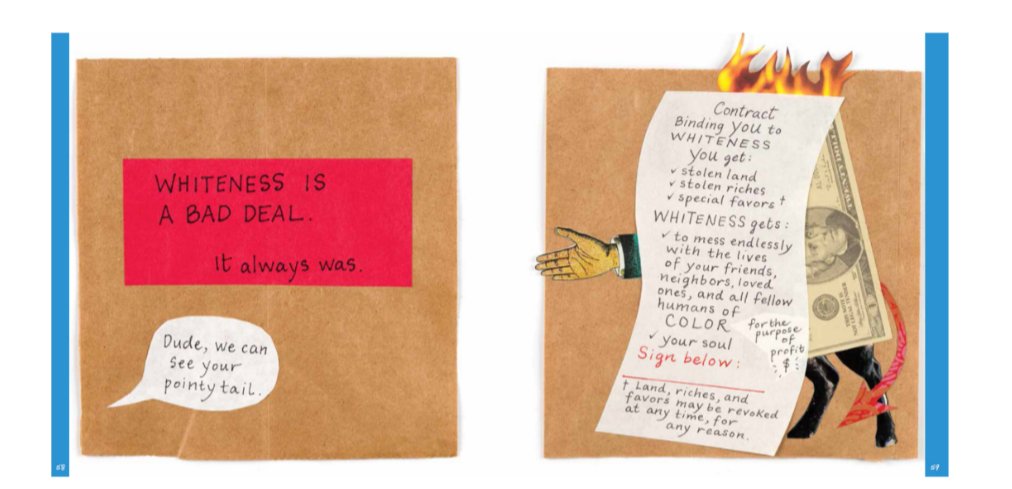 WHITENESS IS
A BAD DEAL.
It always was.
Dude, we can
see your
pointy tail.
58
Contract
Binding YOU to
WHITENESS
You get:
✓ stolen land
✓ stolen riches
✓ special favors †
WHITENESS gets:
✓ to mess endlessly
with the lives
of your friends,
neighbors, loved
ones, and all fellow
humans of
COLOR
✓ your soul
for the
purpose
of
profit
$
Sign below:
† Land, riches, and
favors may be revoked
at any time, for
any reason.
59